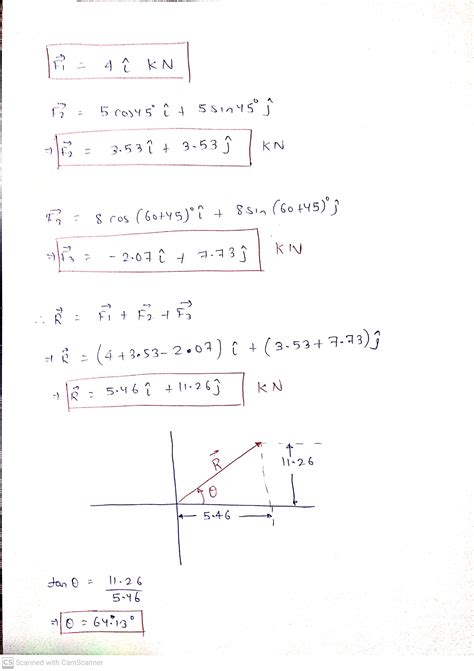 F₁⃗ = 4 î KN
F₂⃗ = 5 cos45° î + 5 sin45° ĵ
⇒ F₂⃗ = 3.53 î + 3.53 ĵ KN
F₃⃗ = 8 cos (60+45)° î + 8 sin (60+45)° ĵ
⇒ F₃⃗ = - 2.07 î + 7.73 ĵ KN
∴ R⃗ = F₁⃗ + F₂⃗ + F₃⃗
⇒ R⃗ = (4+3.53-2.07) î + (3.53+7.73) ĵ
⇒ R⃗ = 5.46 î + 11.26 ĵ KN
R⃗
11.26
θ
5.46
tan θ = 11.26
5.46
⇒ θ = 64.13°
CS Scanned with CamScanner